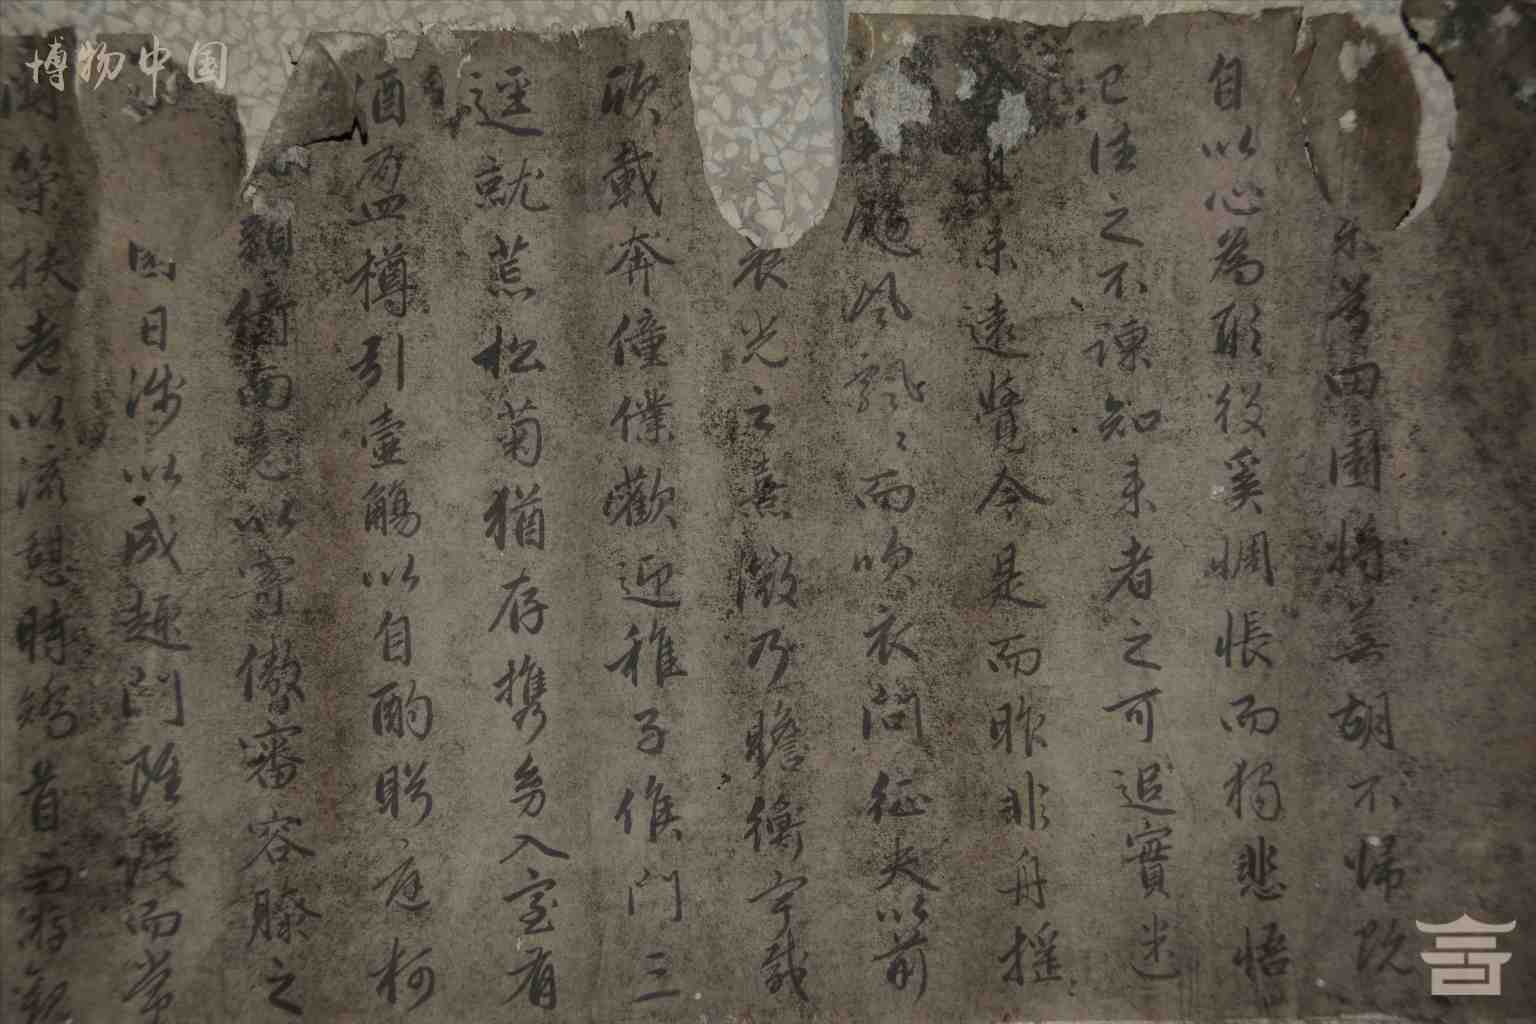 博物中国
兮田園將蕪胡不歸既
自以心為形役奚惆悵而獨悲悟
已往之不諫知来者之可追實迷
其未遠覺今是而昨非舟摇
颺風飄〻而吹衣問征夫以前
光之熹微乃瞻衡宇載
欣載奔僮僕歡迎稚子候門三
逕就荒松菊猶存携幼入室有
酒盈樽引壺觴以自酌眄庭柯
顏倚南窓以寄傲審容膝之
園日涉以成趣門雖設而常
關策扶老以流憩時矯首而游觀